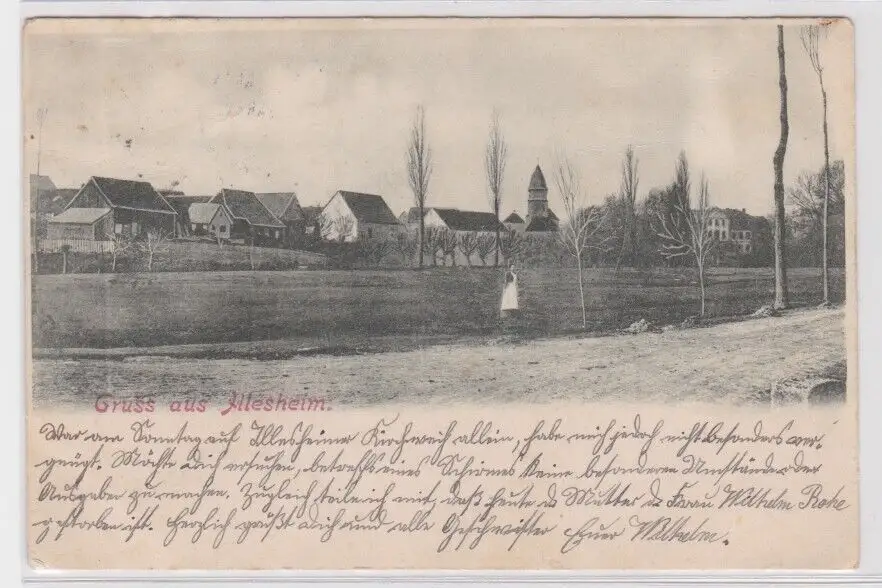 Gruss aus Illesheim.
War am Sonntag auf Illesheimer Kirchweih allein, habe mich jedoch nicht besonders ver-
gnügt. Möchte Dich ersuchen, betreffs eines Schirmes keine besonderen Umstände oder
Ausgaben zu machen. Zugleich teile ich mit, daß heute d. Mutter d. Frau Wilhelm
gestorben ist. Herzlich grüßt Dich und alle Geschwister Euer Wilhelm.